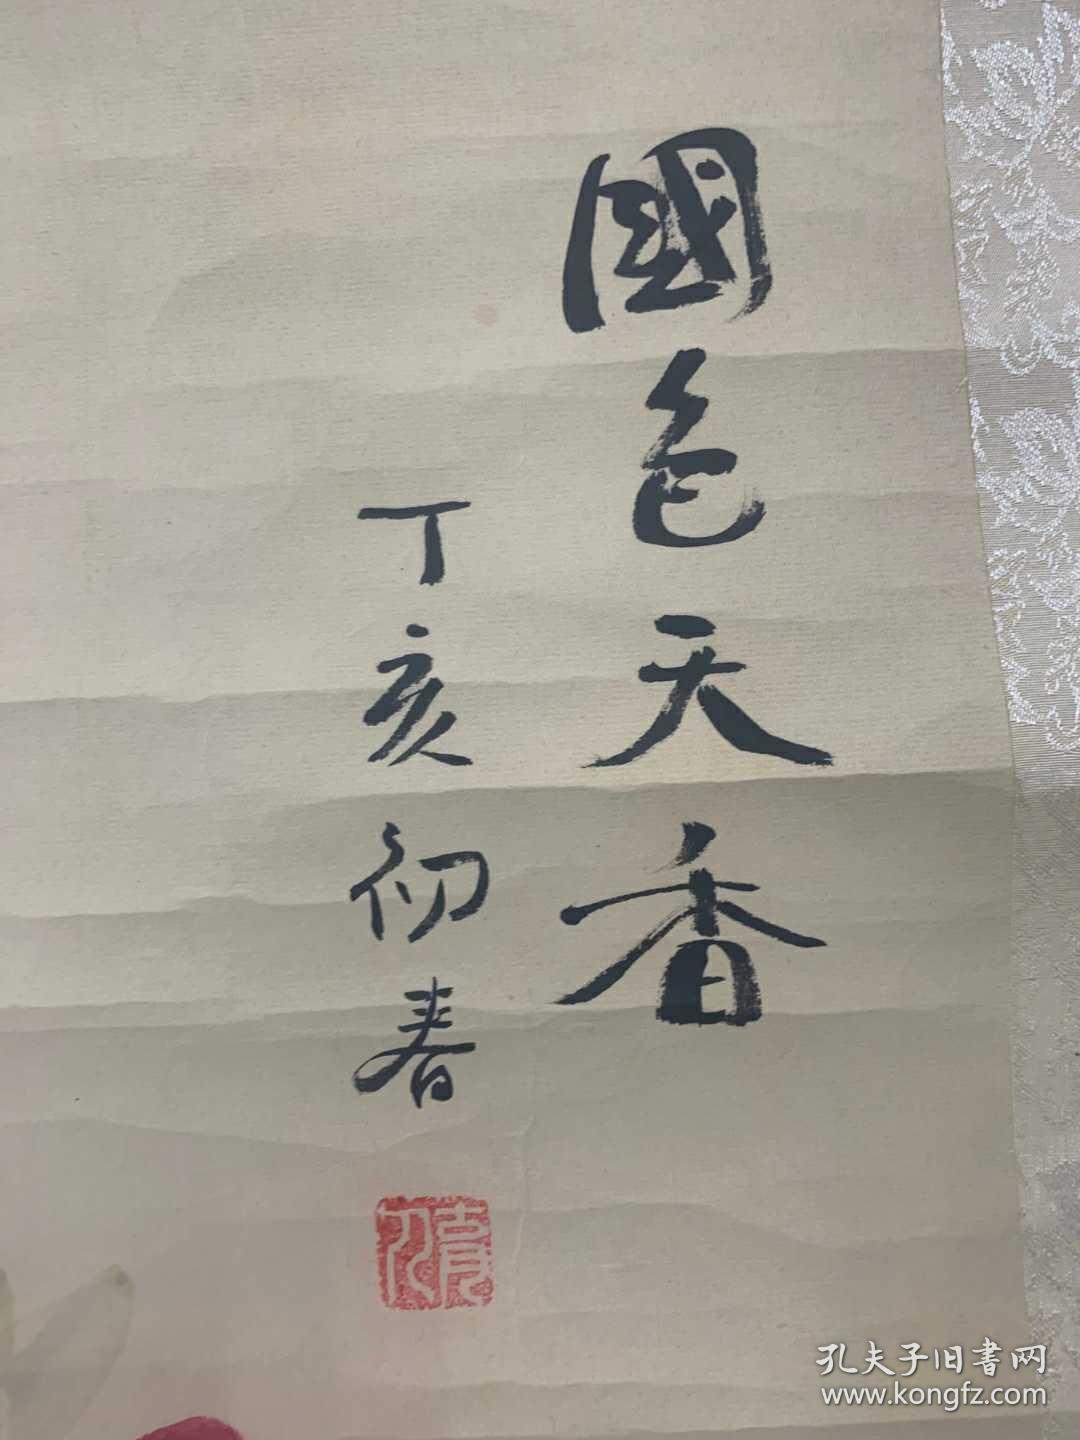 國色天香
丁亥初春
孔夫子旧書网
www.kongfz.com